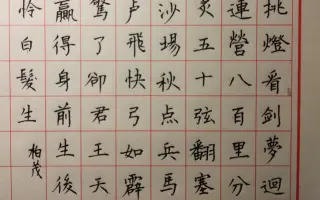 挑燈看劍夢迴
連營八百里分
炙五十弦翻塞
沙場秋点兵馬
卢飛快弓如霹
驚了卻君王天
贏得身前生後
怜白髮生
柏茂